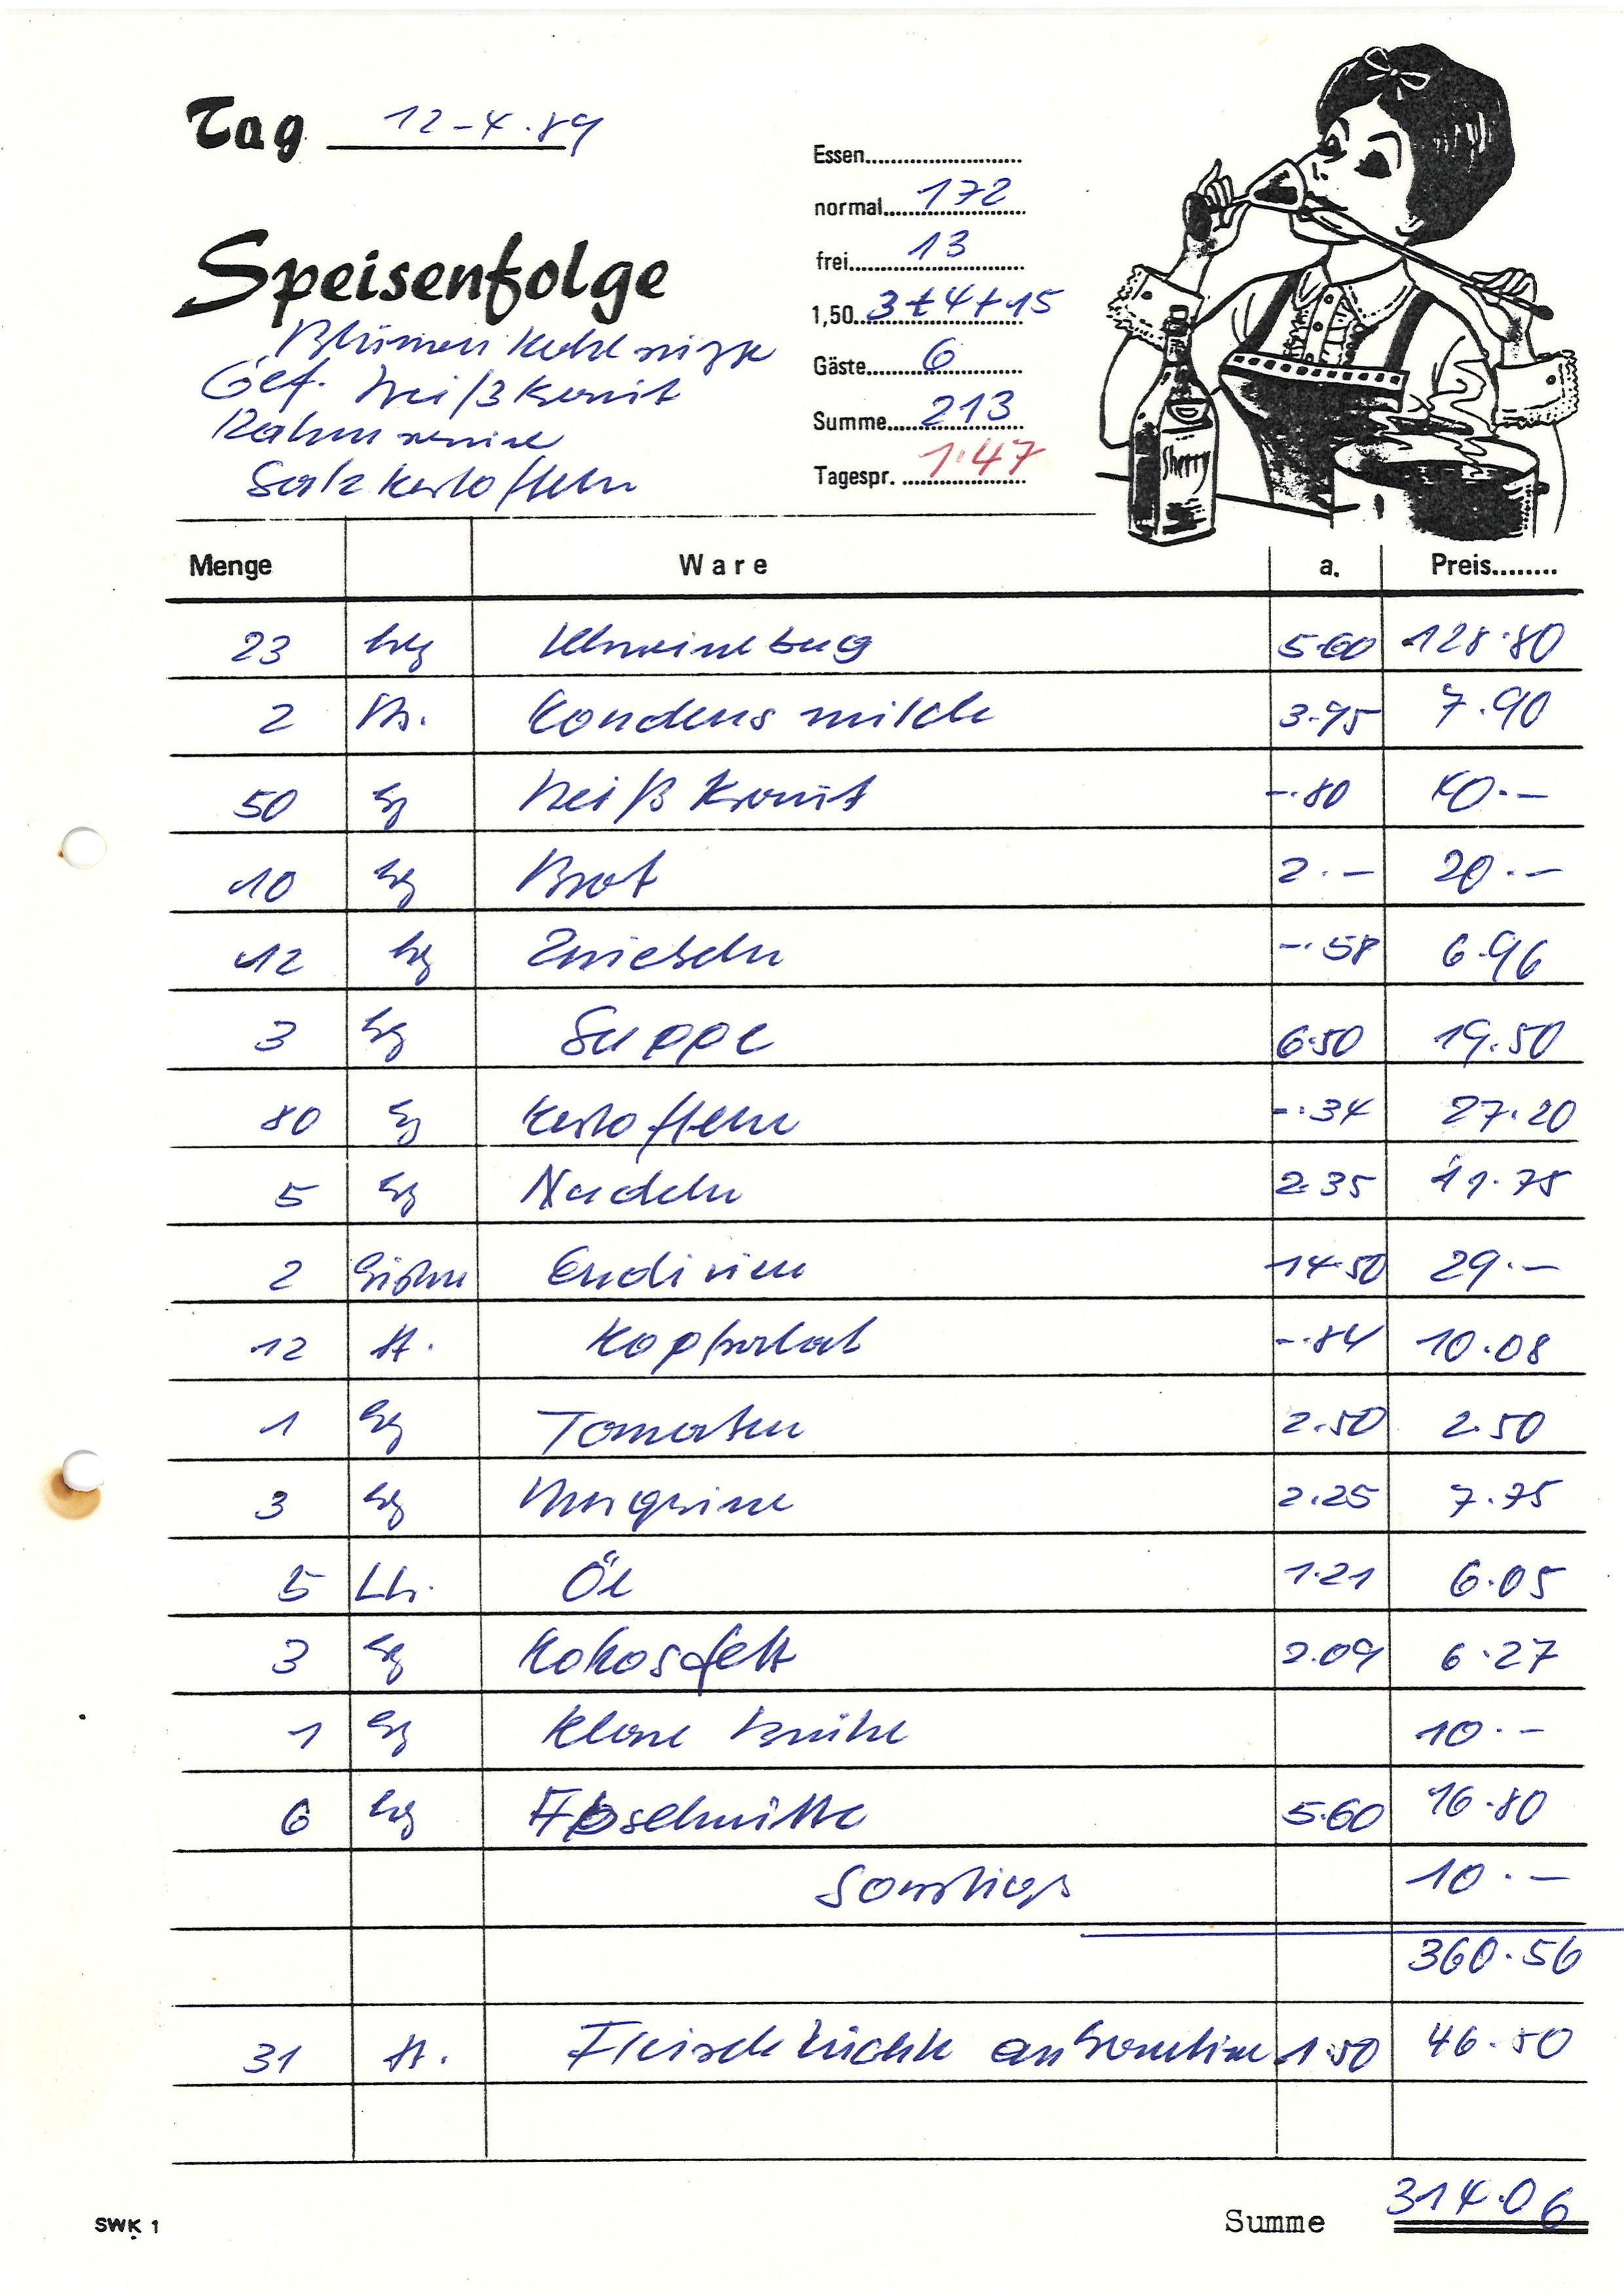 Tag 12-4.89
Essen
normal 172
frei 13
1,50 3+4+15
Gäste 6
Summe 213
Tagespr. 1.47
Speisenfolge
Blumenkohlsuppe
Gef. Weißkraut
Rahmsauce
Salzkartoffeln
Sherry
Menge Ware a. Preis
23 kg Schweinebug 5.60 128.80
2 Kondensmilch 3.95 7.90
50 kg Weißkraut -.80 40.-
10 kg Brot 2.- 20.-
12 kg Zwiebeln -.58 6.96
3 kg Suppe 6.50 19.50
80 kg Kartoffeln -.34 27.20
5 kg Nudeln 2.35 11.75
2 Endivien 14.50 29.-
12 St. Kopfsalat -.84 10.08
1 kg Tomaten 2.50 2.50
3 kg Margarine 2.25 7.75
5 Ltr. Öl 1.21 6.05
3 kg Kokosfett 2.09 6.27
1 kg Klare Brühe 10.-
6 kg abschnitte 5.60 16.80
Sonstiges 10.-
360.56
31 St. Fleischküchle an 1.50 46.50
SWK 1
Summe 314.06